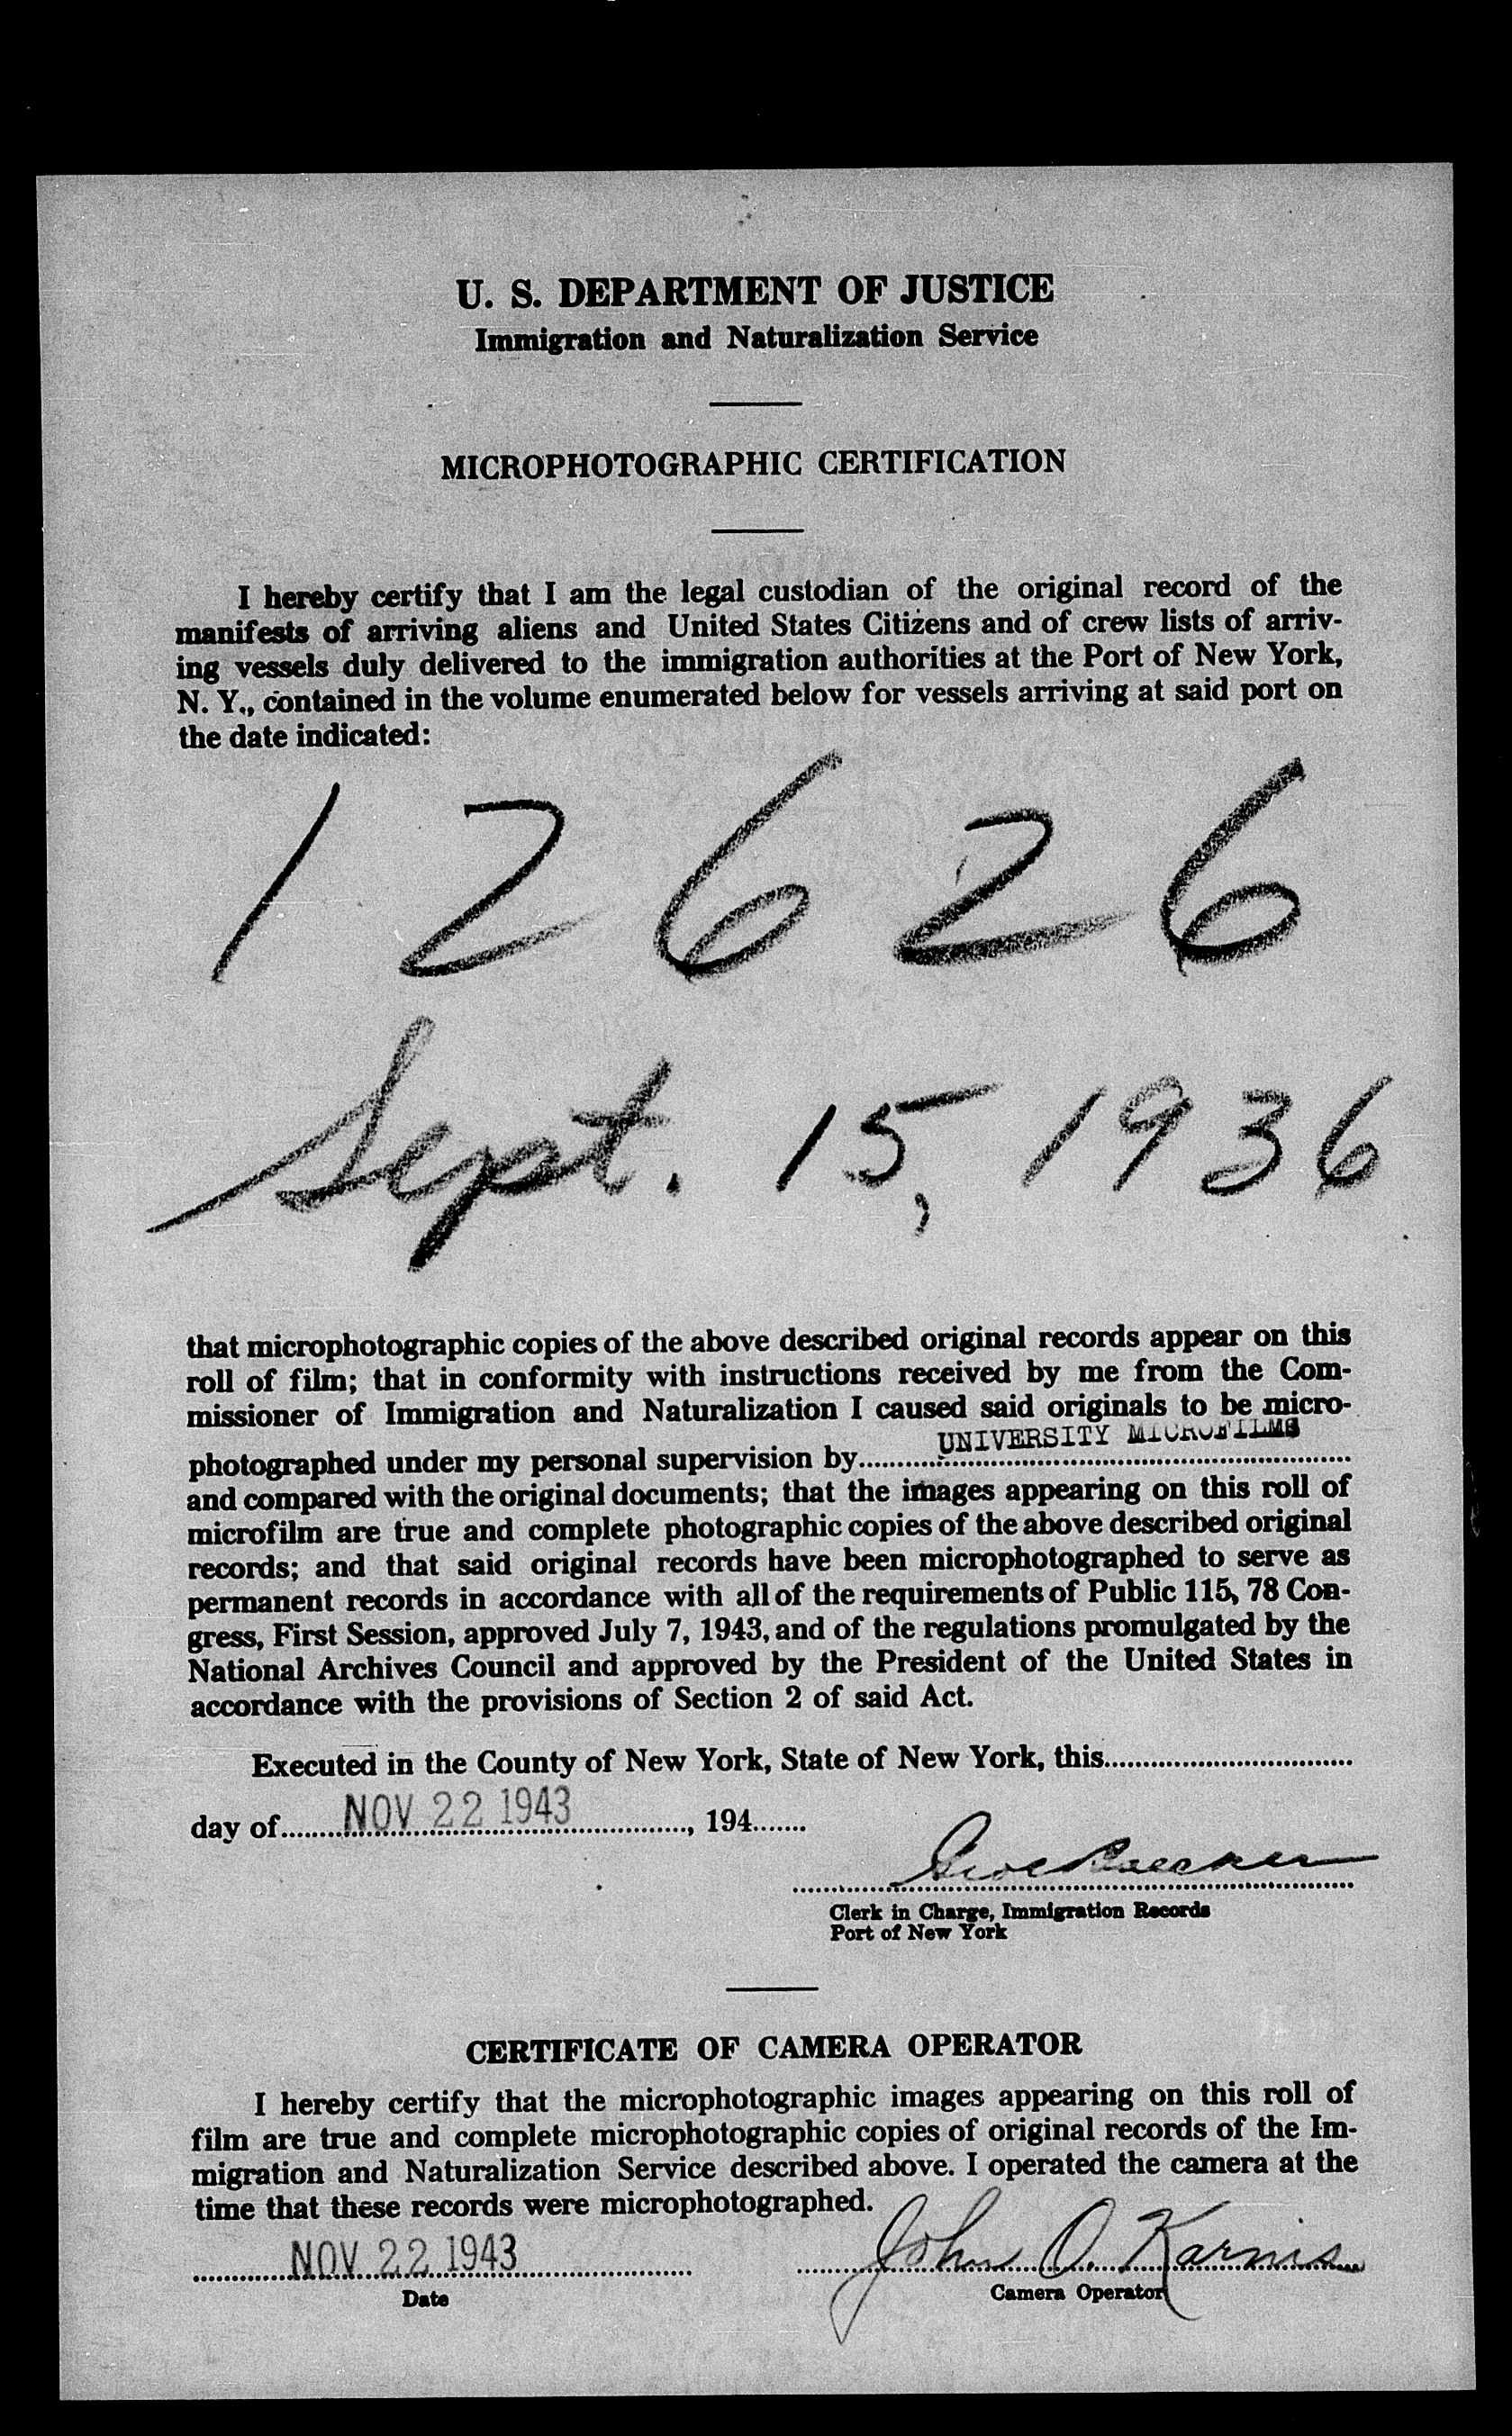 U. S. DEPARTMENT OF JUSTICE
Immigration and Naturalization Service
MICROPHOTOGRAPHIC CERTIFICATION
I hereby certify that I am the legal custodian of the original record of the
manifests of arriving aliens and United States Citizens and of crew lists of arriv-
ing vessels duly delivered to the immigration authorities at the Port of New York,
N. Y., contained in the volume enumerated below for vessels arriving at said port on
the date indicated:
12626
Sept. 15, 1936
that microphotographic copies of the above described original records appear on this
roll of film; that in conformity with instructions received by me from the Com-
missioner of Immigration and Naturalization I caused said originals to be micro-
photographed under my personal supervision by UNIVERSITY MICROFILMS
and compared with the original documents; that the images appearing on this roll of
microfilm are true and complete photographic copies of the above described original
records; and that said original records have been microphotographed to serve as
permanent records in accordance with all of the requirements of Public 115, 78 Con-
gress, First Session, approved July 7, 1943, and of the regulations promulgated by the
National Archives Council and approved by the President of the United States in
accordance with the provisions of Section 2 of said Act.
Executed in the County of New York, State of New York, this
day of NOV 22 1943, 194
Clerk in Charge, Immigration Records
Port of New York
CERTIFICATE OF CAMERA OPERATOR
I hereby certify that the microphotographic images appearing on this roll of
film are true and complete microphotographic copies of original records of the Im-
migration and Naturalization Service described above. I operated the camera at the
time that these records were microphotographed.
NOV 22 1943 John O. Karnis
Date Camera Operator